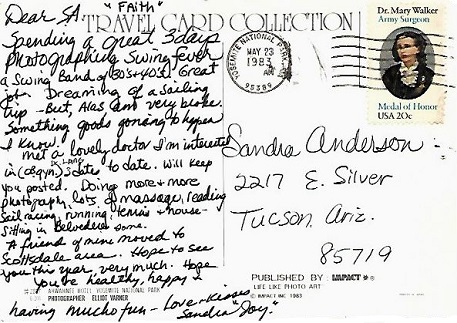 "Faith"
TRAVEL CARD COLLECTION
Dear SA.
Spending a great 3 days
photographing Swing fever
a Swing Band of 30's + 40's. Great
job. Dreaming of a Sailing
trip - But, Alas am very broke.
Something goods gonning to happen
I know.
met a lovely doctor I'm interested
in (obgyn) 3 dates to date. Will keep
you posted. Doing more + more
photography, lots of massage, reading
sail racing, running, tennis + house-
sitting in Belvedere some.
A friend of mine moved to
Scottsdale area. Hope to see
you this year, very much. Hope
you're healthy, happy +
having much fun - Love - Kisses
Sandra Joy.
AHWAHNEE HOTEL YOSEMITE NATIONAL PARK
PHOTOGRAPHER ELLIOT VARNER
YOSEMITE NATIONAL PARK
MAY 23
1983
AM
95389
Dr. Mary Walker
Army Surgeon
Medal of Honor
USA 20c
Sandra Anderson
2217 E. Silver
Tucson, Ariz.
85719
PUBLISHED BY IMPACT
LIFE LIKE PHOTO ART
© IMPACT INC 1983